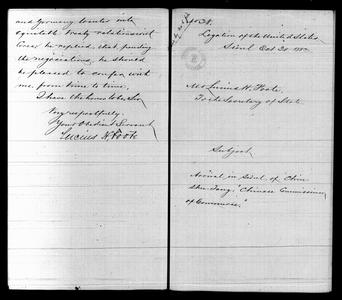 and growing trade into
equitable treaty relations and
he replied, that pending
the negotiations, he should
be pleased to confer with
me from time to time.
I have the honor to be Sir
Very respectfully.
Your Obedient Servant
Lucius H. Foote
No 34.
Legation of the United States
Seoul Oct 30
Mr Lucius H. Foote.
To the Secretary of State.
Subject
Arrival in Seoul of Chun
Shu Tang, "Chinese Commissioner
of Commerce."